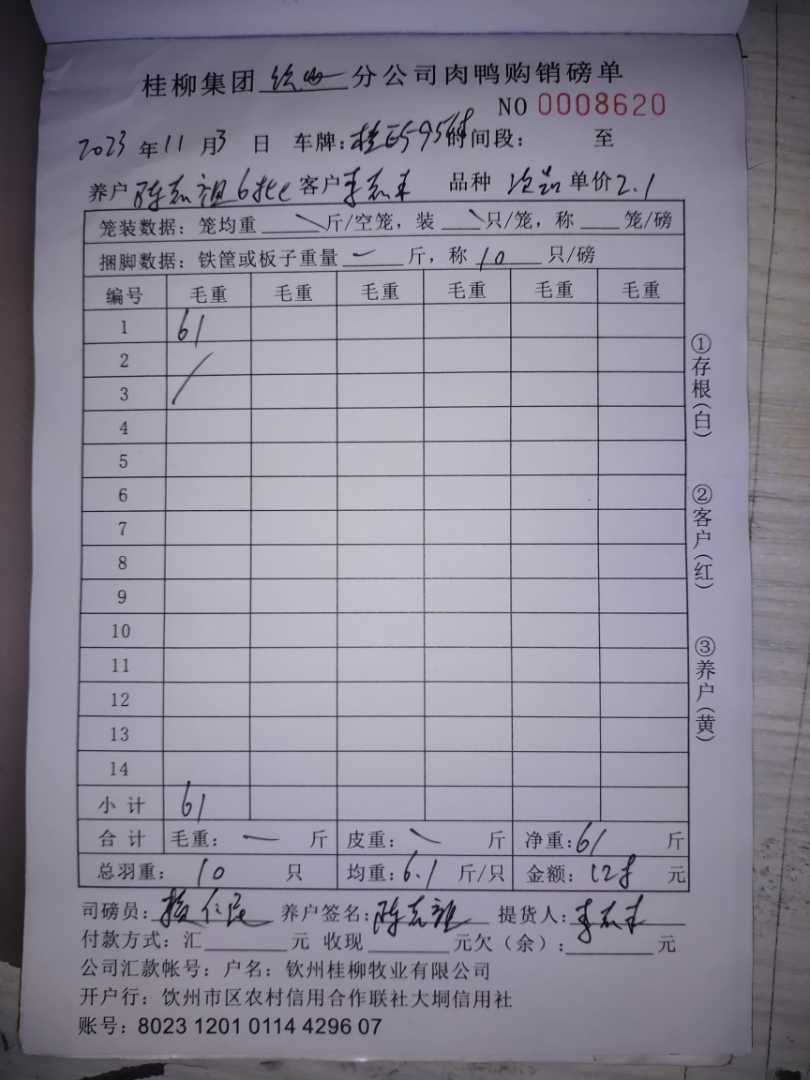 桂柳集团钦州分公司肉鸭购销磅单
NO 0008620
2023年11月3日 车牌: 时间段: 至
养户陈志祖6批 客户李志 品种次品 单价2.1
笼装数据:笼均重 斤/空笼,装 只/笼,称 笼/磅
捆脚数据:铁筐或板子重量 一 斤,称 10 只/磅
编号 毛重 毛重 毛重 毛重 毛重 毛重
1 61
2
3
4
5
6
7
8
9
10
11
12
13
14
小计 61
合计 毛重: 一 斤 皮重: 斤 净重:61 斤
总羽重: 10 只 均重:6.1 斤/只 金额:128 元
司磅员: 养户签名:陈志祖 提货人:李志
付款方式:汇 元 收现 元欠(余): 元
公司汇款帐号:户名:钦州桂柳牧业有限公司
开户行:饮州市区农村信用合作联社大垌信用社
账号:8023 1201 0114 4296 07
①存根(白)
②客户(红)
③养户(黄)